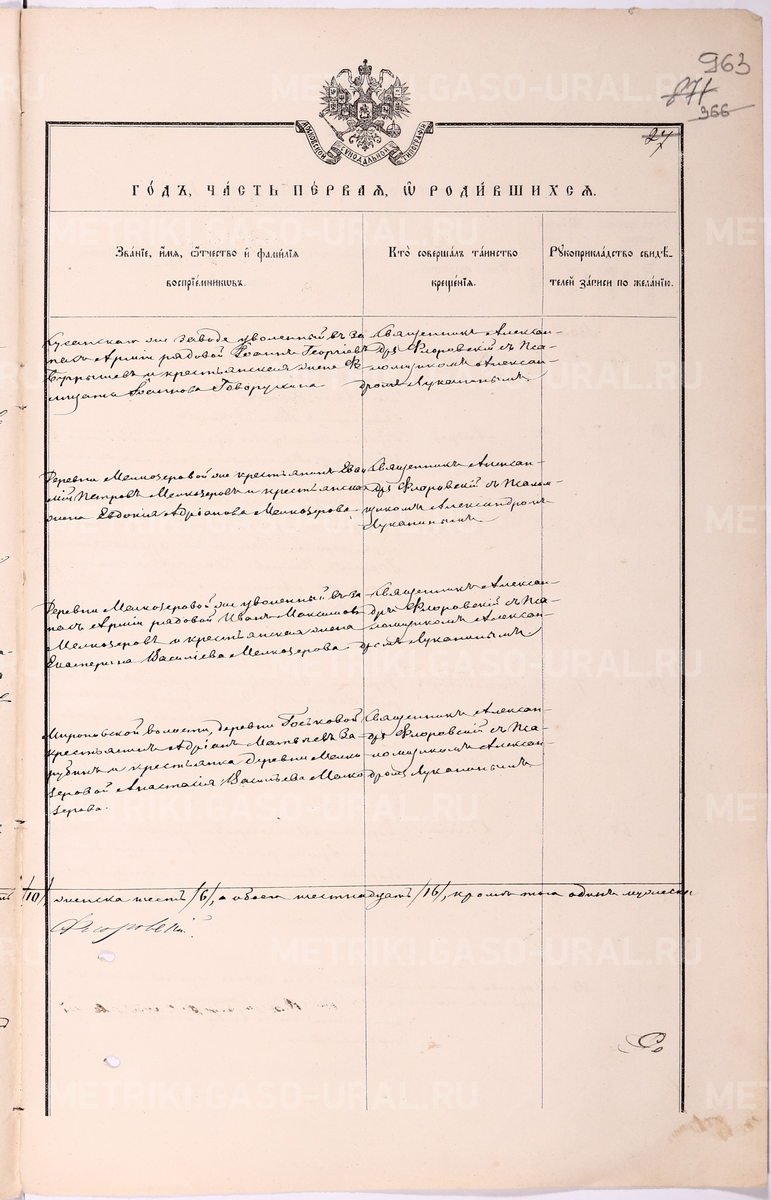 963
871
366
27
МОСКОВСКОЙ СѴНОДАЛЬНОЙ ТИПОГРАФІИ
ГО́ДЪ, ЧА́СТЬ ПЕ́РВАЯ, Ѡ҆ РОДИ́ВШИХСЯ.
Зва́ніе, и҆́мя, ѻ҆́тчество и҆ фами́лія
воспріе́мникѡвъ.
Кто̀ соверша́лъ та́инство
креще́нія.
Рꙋкоприкла́дство свидѣ́-
телей за́писи по жела́нію.
заводе уволенный въ За
пасъ Арміи рядовой Іоаннъ Георгіевъ
и крестьянская жена
Іоаннова Говорухина
Священникъ Алексан-
дръ Флоровскій съ Пса-
ломщикомъ Алексан-
дромъ Лукапинымъ
Деревни Мелкозеровой же крестьянинъ
Петровъ Мелкозеровъ и крестьянска
жена Евдокія Адріанова Мелкозерова
Священникъ Алексан-
дръ Флоровскій съ Псалом-
щикомъ Александромъ
Лукапинымъ
Деревни Мелкозеровой же уволенный въ За
пасъ Арміи рядовой Иванъ Максимовъ
Мелкозеровъ и крестьянская жена
Екатерина Василіева Мелкозерова
Священникъ Алексан-
дръ Флоровскій съ Пса-
ломщикомъ Алексан-
дромъ Лукапинымъ
волости, деревни
крестьянинъ Адріанъ Матвѣевъ За-
рубинъ и крестьянка деревни Мелко
зеровой Анастасія Васильева Мелко
зерова.
Священникъ Алексан-
дръ Флоровскій съ Пса-
ломщикомъ Алексан-
дромъ Лукапинымъ
/10/, женска шесть /6/, а обоего шестнадцать /16/, кромѣ того одинъ мужеска
Флоровскій.
METRIKI.GASO-URAL.RU